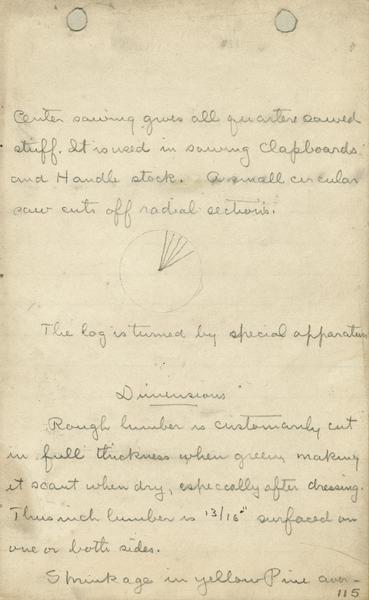 Center sawing gives all quartere sawed
stuff. It is used in sawing Clapboards
and Handle stock. A small circular
saw cuts off radial sections.
The log is turned by special apparatus
Dimensions
Rough lumber is customarily cut
in full thickness when green, making
it scant when dry, especially after dressing.
Thus inch lumber is 13/16" surfaced on
one or both sides.
Shrinkage in yellow Pine aver-
115